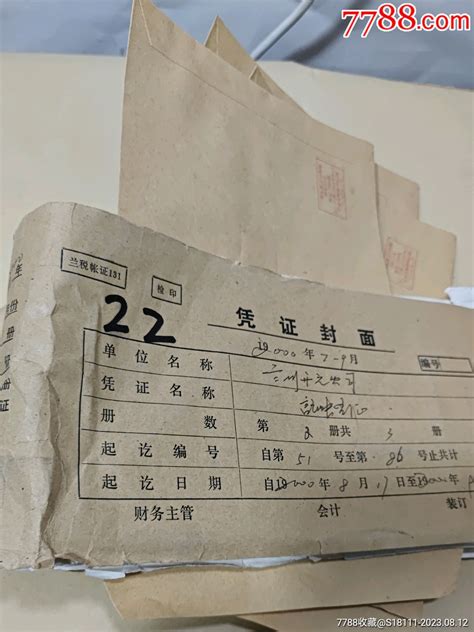 7788.com
兰税帐证131
检印
22
凭证封面
2000年7-9月
编号
单位名称 兰州开元公司
凭证名称
册数 第2册共3册
起讫编号 自第51号至第86号止共计
起讫日期 自2000年8月17日至2000年9
财务主管 会计 装订
年
份
册
号
证
7788收藏@S18111-2023.08.12